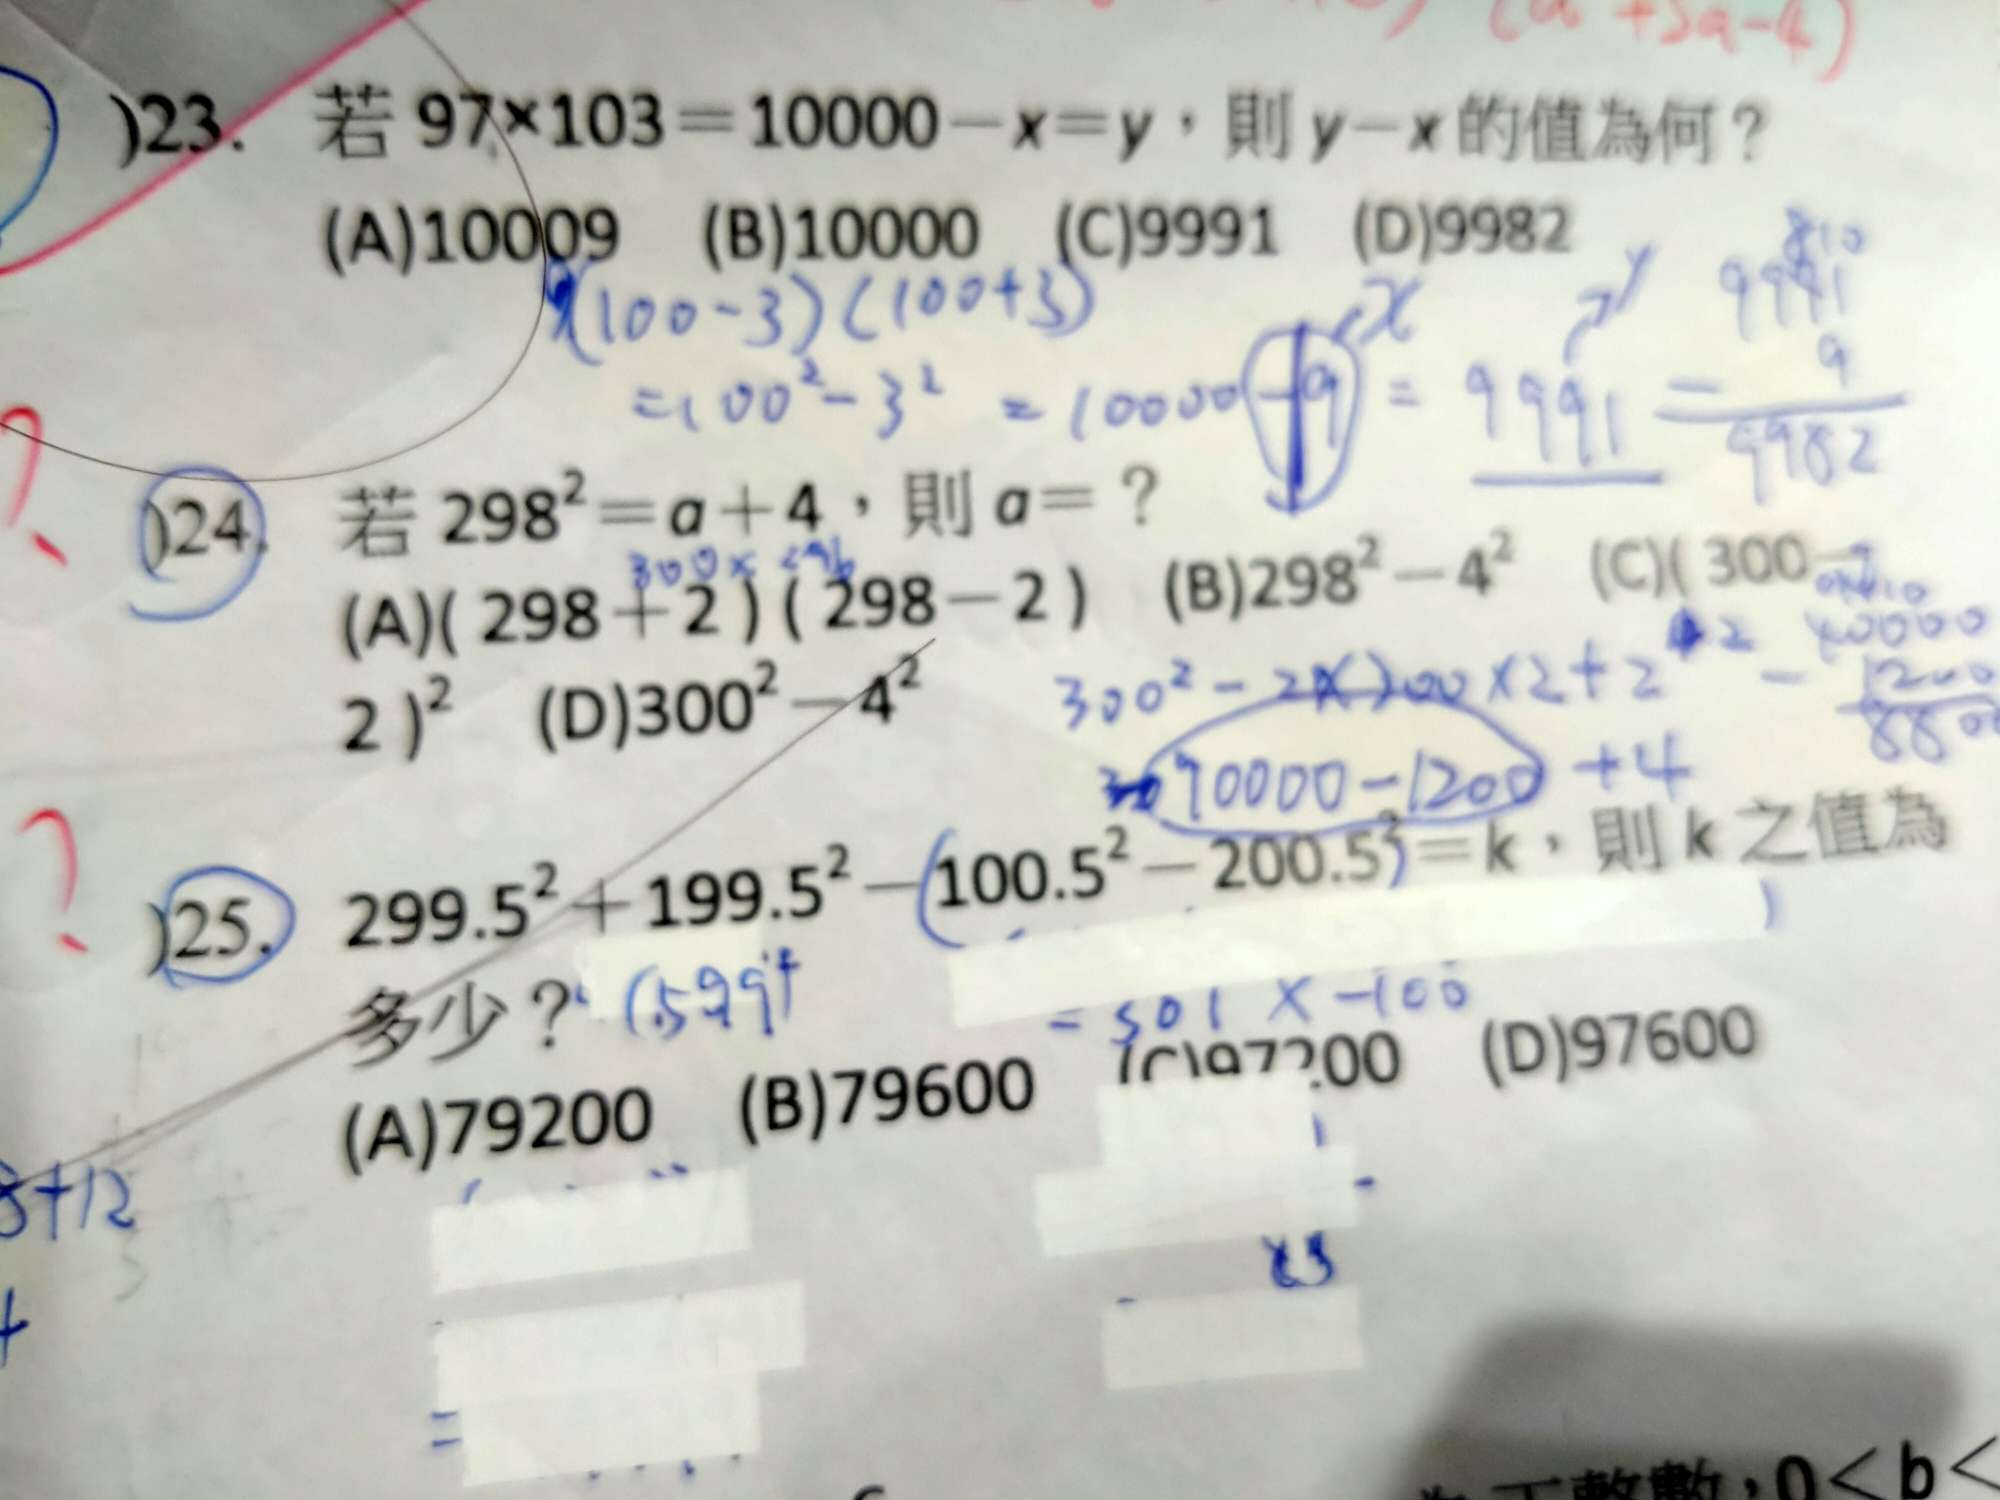 (a²+3a-4)
)23. 若 97×103=10000-x=y，則 y-x 的值為何？
(A)10009 (B)10000 (C)9991 (D)9982
(100-3)(100+3)
=100²-3² = 10000-9 = 9991
x
y
9991
9
9982
?
)24. 若 298²=a+4，則 a=？
300×296
(A)(298+2)(298-2) (B)298²-4² (C)(300-
2)² (D)300²-4²
300²-2×300×2+2²
90000-1200 +4
?
)25. 299.5²+199.5²-(100.5²-200.5²)=k，則 k 之值為
多少？
= 301 × -100
(A)79200 (B)79600 (C)97200 (D)97600
+12
×3
=
正整數，0<b<